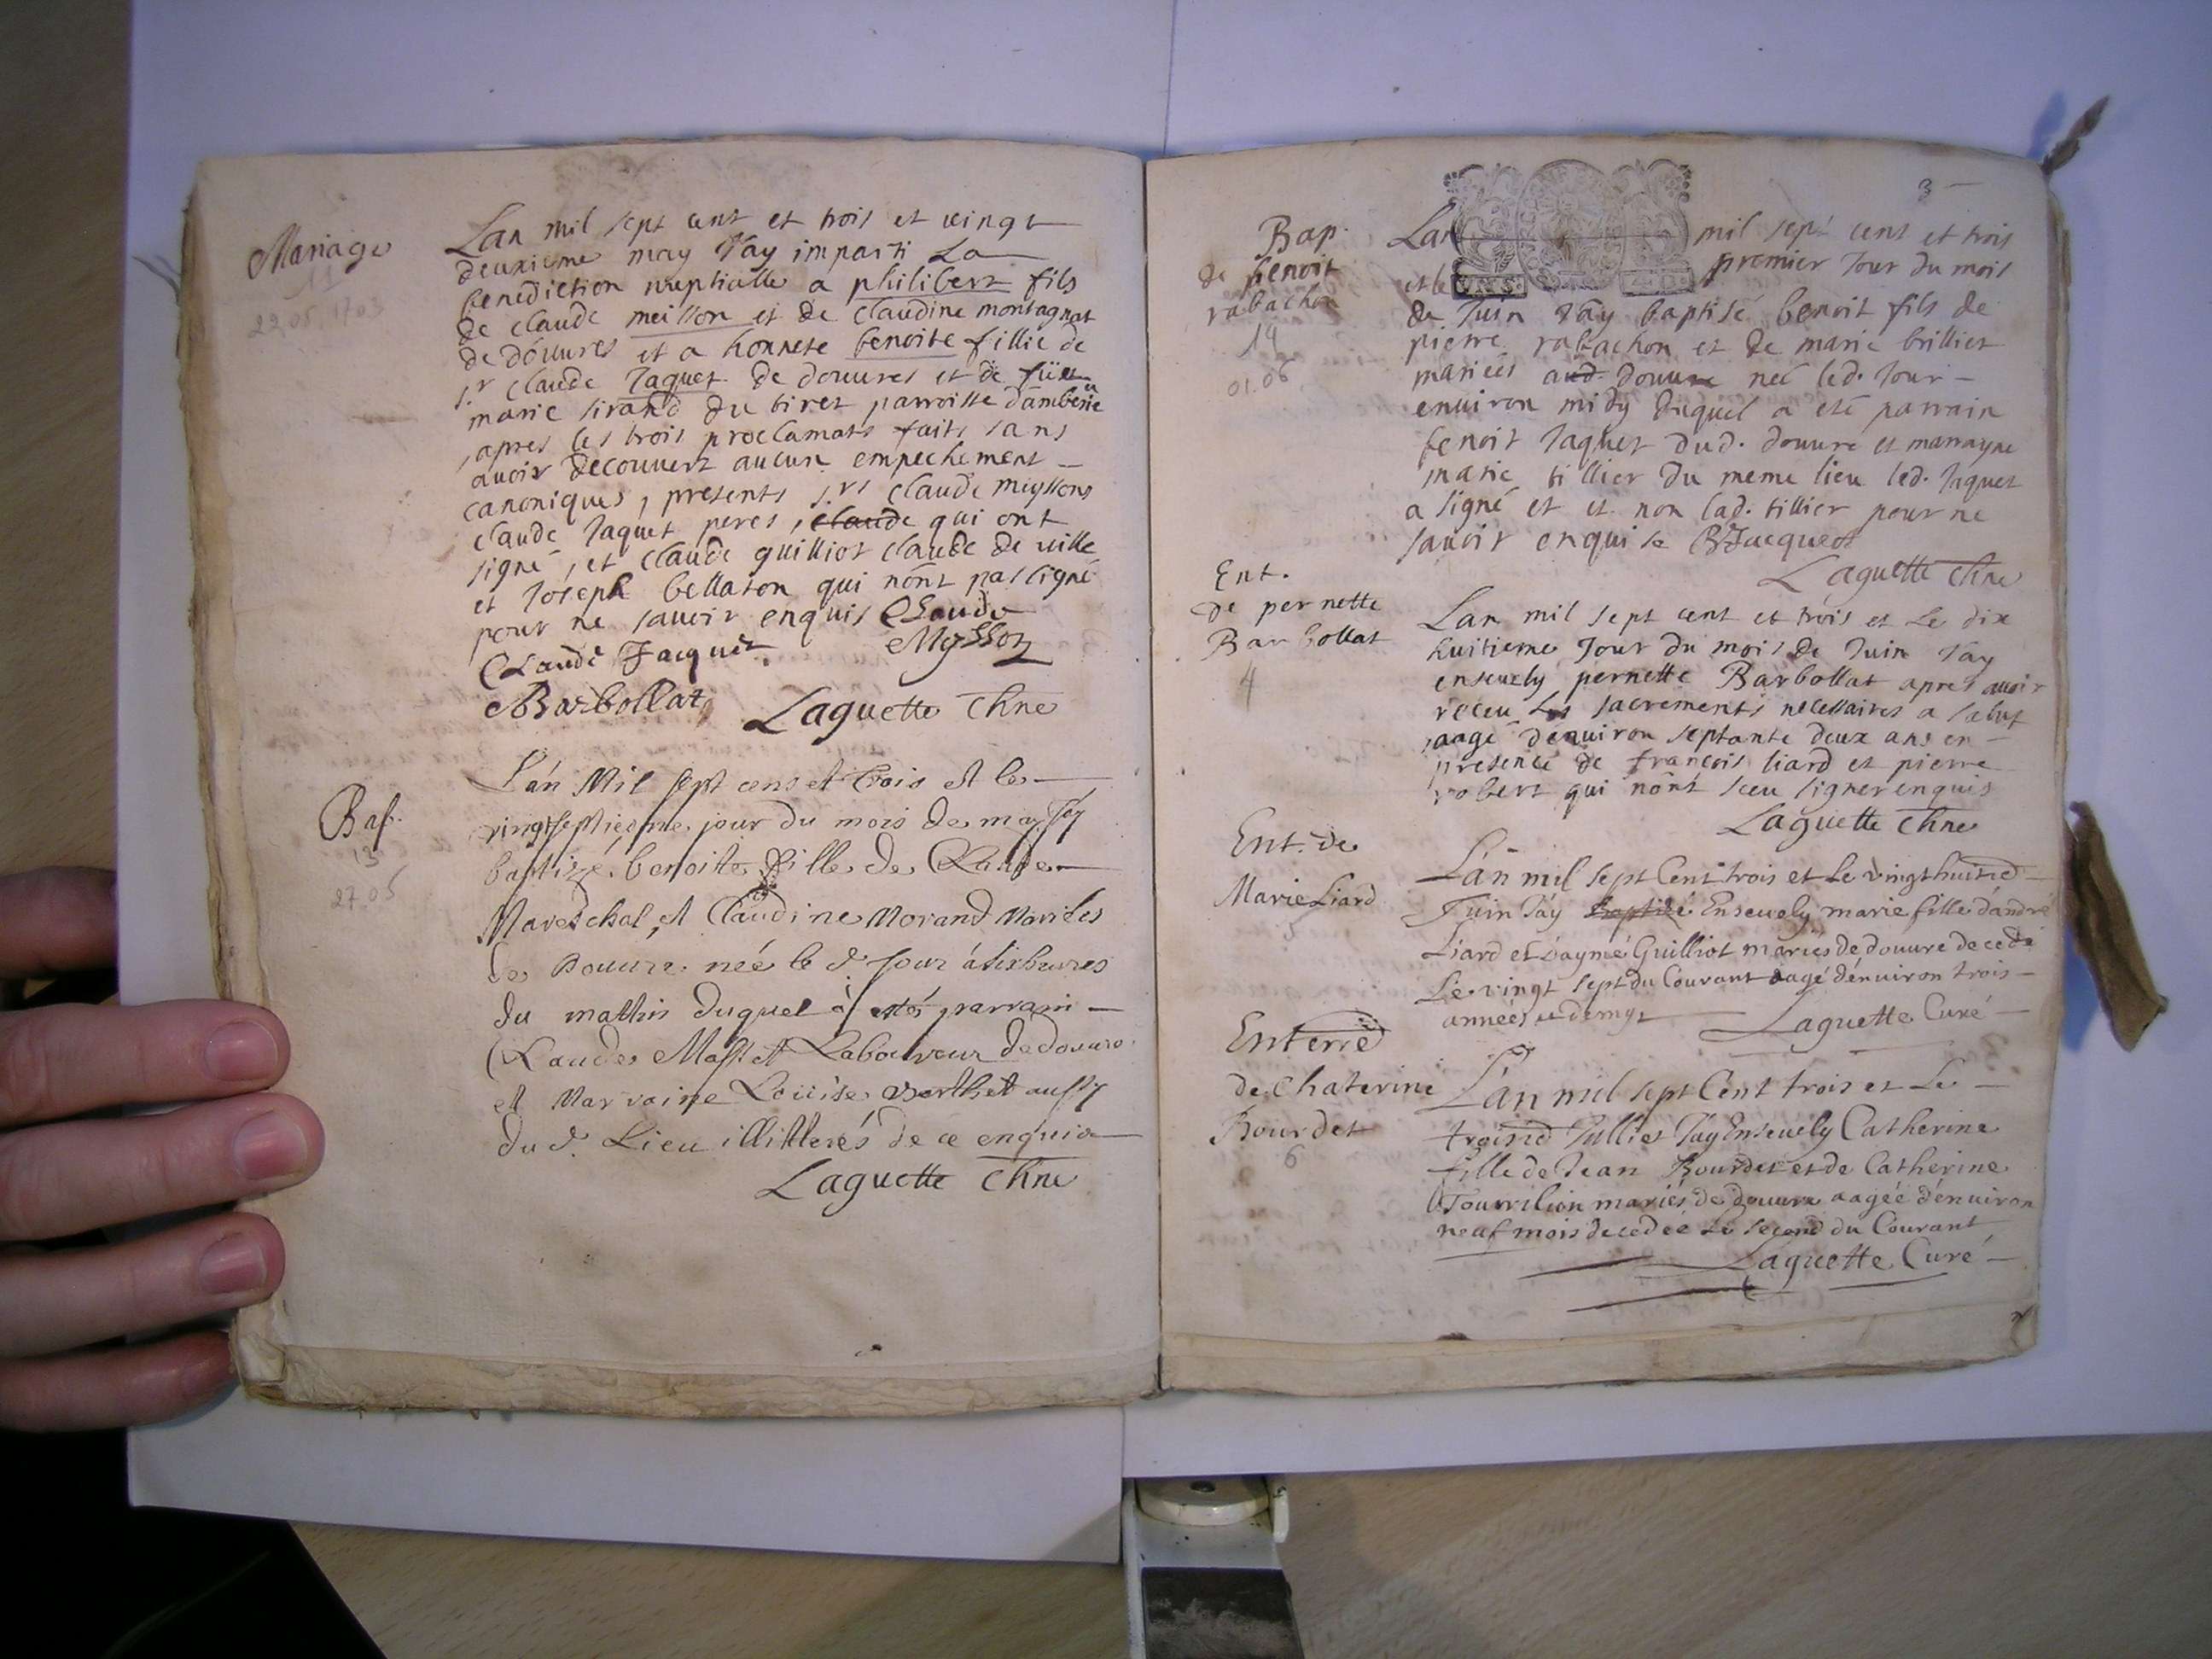 Mariage
11
22.05.1703
Lan mil sept cent et trois et vingt
deuxieme may Jay imparti La
benediction nuptialle a philibert fils
de claude meillon et de claudine montagnat
de douures et a honnete benoite fillie de
s.r claude Jaquet de douures et de
marie sirand du tiret parroisse dambeirie
apres les trois proclamats faits sans
auoir decouuert aucun empechement
canoniques, presents s.rs claude meyssons
claude Jaquet peres, claude qui ont
signé, et claude guilliot claude de uille
et Joseph bellaton qui nont pas signé
pour ne sauoir enquis Claude
Claude Jacquet Mysson
Barbollat Laguette Chne
Bap.
13
27.05
Lán Mil sept cens et trois et le
vingtseptiesme jour du mois de may Jay
baptizé benoite fille de Claude
Mareschal et Claudine Morand Mariles
de Douure née le d Jour á six heures
du mathin duquel á esté parrain
Claude Massit Laboureur de douure
et Marraine Louise Berthet aussy
du d. Lieu illitterés de ce enquis
Laguette Chne
3
Bap.
de benoit
rabachon
14
01.06
Lan mil sept cent et trois
et le premier Jour du mois
de Juin Jay baptisé benoit fils de
pierre rabachon et de marie brillier
mariees aud. douure neé led. Jour
enuiron midy duquel a eté parrain
benoit Jaquet dud. douure et marrayne
marie tillier du meme lieu led. Jaquet
a signé et et non lad. tillier pour ne
sauoir enquise BJacquet
Laguette Chne
Ent.
de pernette
Barbollat
4
Lan mil sept cent et trois et Le dix
huitieme Jour du mois de Juin Jay
enseuely pernette Barbollat apres auoir
receu Les sacrements necessaires a salut
aagé denuiron septante deux ans en
presence de francois liard et pierre
robert qui nont sceu signer enquis
Laguette Chne
Ent. de
Marie Liard
5
Lán mil sept Cent trois et Le vingthuitie
Juin Jáy baptizé Enseuely marie fille dandré
Liard et Daymé Guilliot mariés de douure decedé
Le vingt sept du Courant aagé dénuiron trois
anneés et demye Laguette Curé
Enterré
de Chaterine
Bourdet
6
Lán mil sept Cent trois et Le
troisie Julliet Jáy Enseuely Catherine
fille de Jean Bourdet et de Catherine
Tourilion mariés de douure aagée dénuiron
neuf mois decedeé Le second du Courant
Laguette Curé